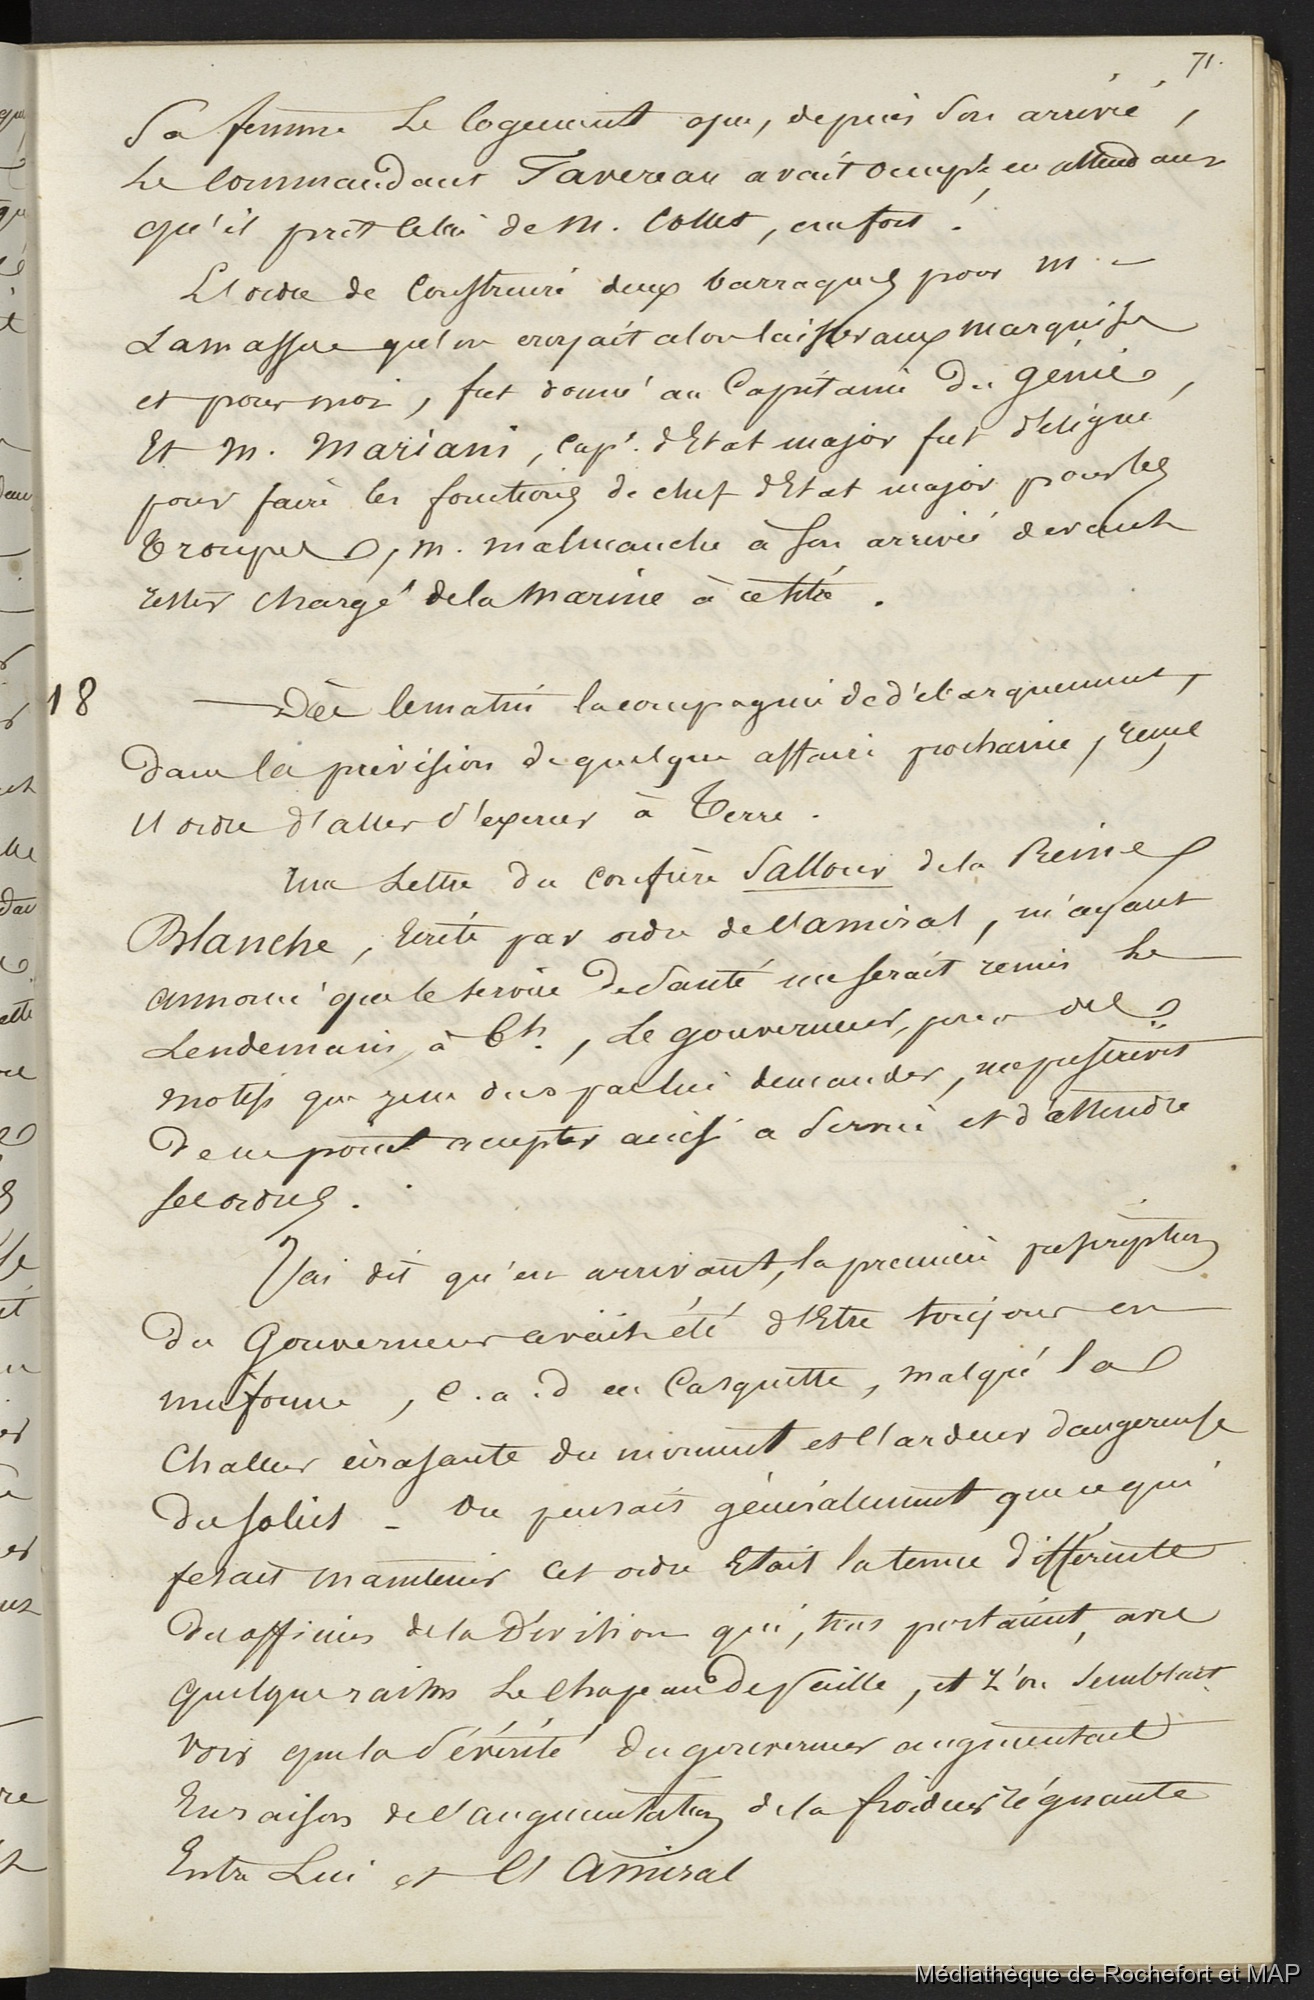 71.
Sa femme le logement que, depuis son arrivée,
le Commandant Favereau avait occupé, en attendant
qu'il prit celui de M. Collet, au fort.
L'ordre de construire deux barraques pour M.
Lamassue qu'on croyait alors laisser aux Marquises
et pour moi, fut donné au Capitaine du génie,
Et M. Mariani, cap. d'Etat major fut désigné
pour faire les fonctions de chef d'Etat major pour les
Troupes, M. Malmanche à son arrivée devant
rester chargé de la Marine à ce titre.
18
Dès le matin la compagnie de débarquement,
dans la prévision de quelque affaire prochaine, reçue
l'ordre d'aller s'exercer à Terre.
Une Lettre du confrère Sallour de la Reine
Blanche, écrite par ordre de l'amiral, m'ayant
annoncé que le service de Santé me serait remis le
Lendemain, à 6h., le gouverneur, pour des
motifs que je ne dus pas lui demander, me prescrivit
de ne point accepter ainsi ce service et d'attendre
ses ordres.
J'ai dit qu'en arrivant, la première prescription
du Gouverneur avait été d'Etre toujours en
uniforme, c.a.d en Casquette, malgré la
Chaleur écrasante du moment et l'ardeur dangereuse
du soleil - On pensait généralement que ce qui
fesait maintenir cet ordre Etait la tenue différente
des officiers de la Division qui, tous portaient, avec
quelque raison le chapeau de paille, et l'on semblait
voir que la sévérité du gouverneur augmentait
En raison de l'augmentation de la froideur régnante
Entre Lui et l'Amiral
Médiathèque de Rochefort et MAP